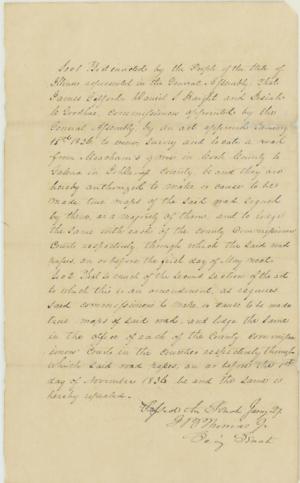 Sec 1 Be it enacted by the People of the State of
Illinois represented in the General Assembly, That
James Daniel S Haight and Josiah
C Goodhue, Commissioners appointed by the
General Assembly, by an act approved January
1836 to view Survey and locate a road
from Meacham's grove in Cook County to
Galena in County be and they are
hereby authorized to make or cause to be
made true maps of the said road signed
by them, or a majority of them, and to lodge
the same with each of the County Commissioners
Courts respectively through which the said road
passes, on or before the first day of May next.
Sec 2 That so much of the second section of the act
to which this is an amendment, as requires
said commissioners to make, or cause to be made
true maps of said road, and lodge the same
in the office of each of the County commissi
oners Courts in the counties respectively through
which said road passes, on or before the 1st
day of November 1836 be and the same is
hereby repealed.
Passed in Senate Jany 29.
Thomas Jr.
Senate